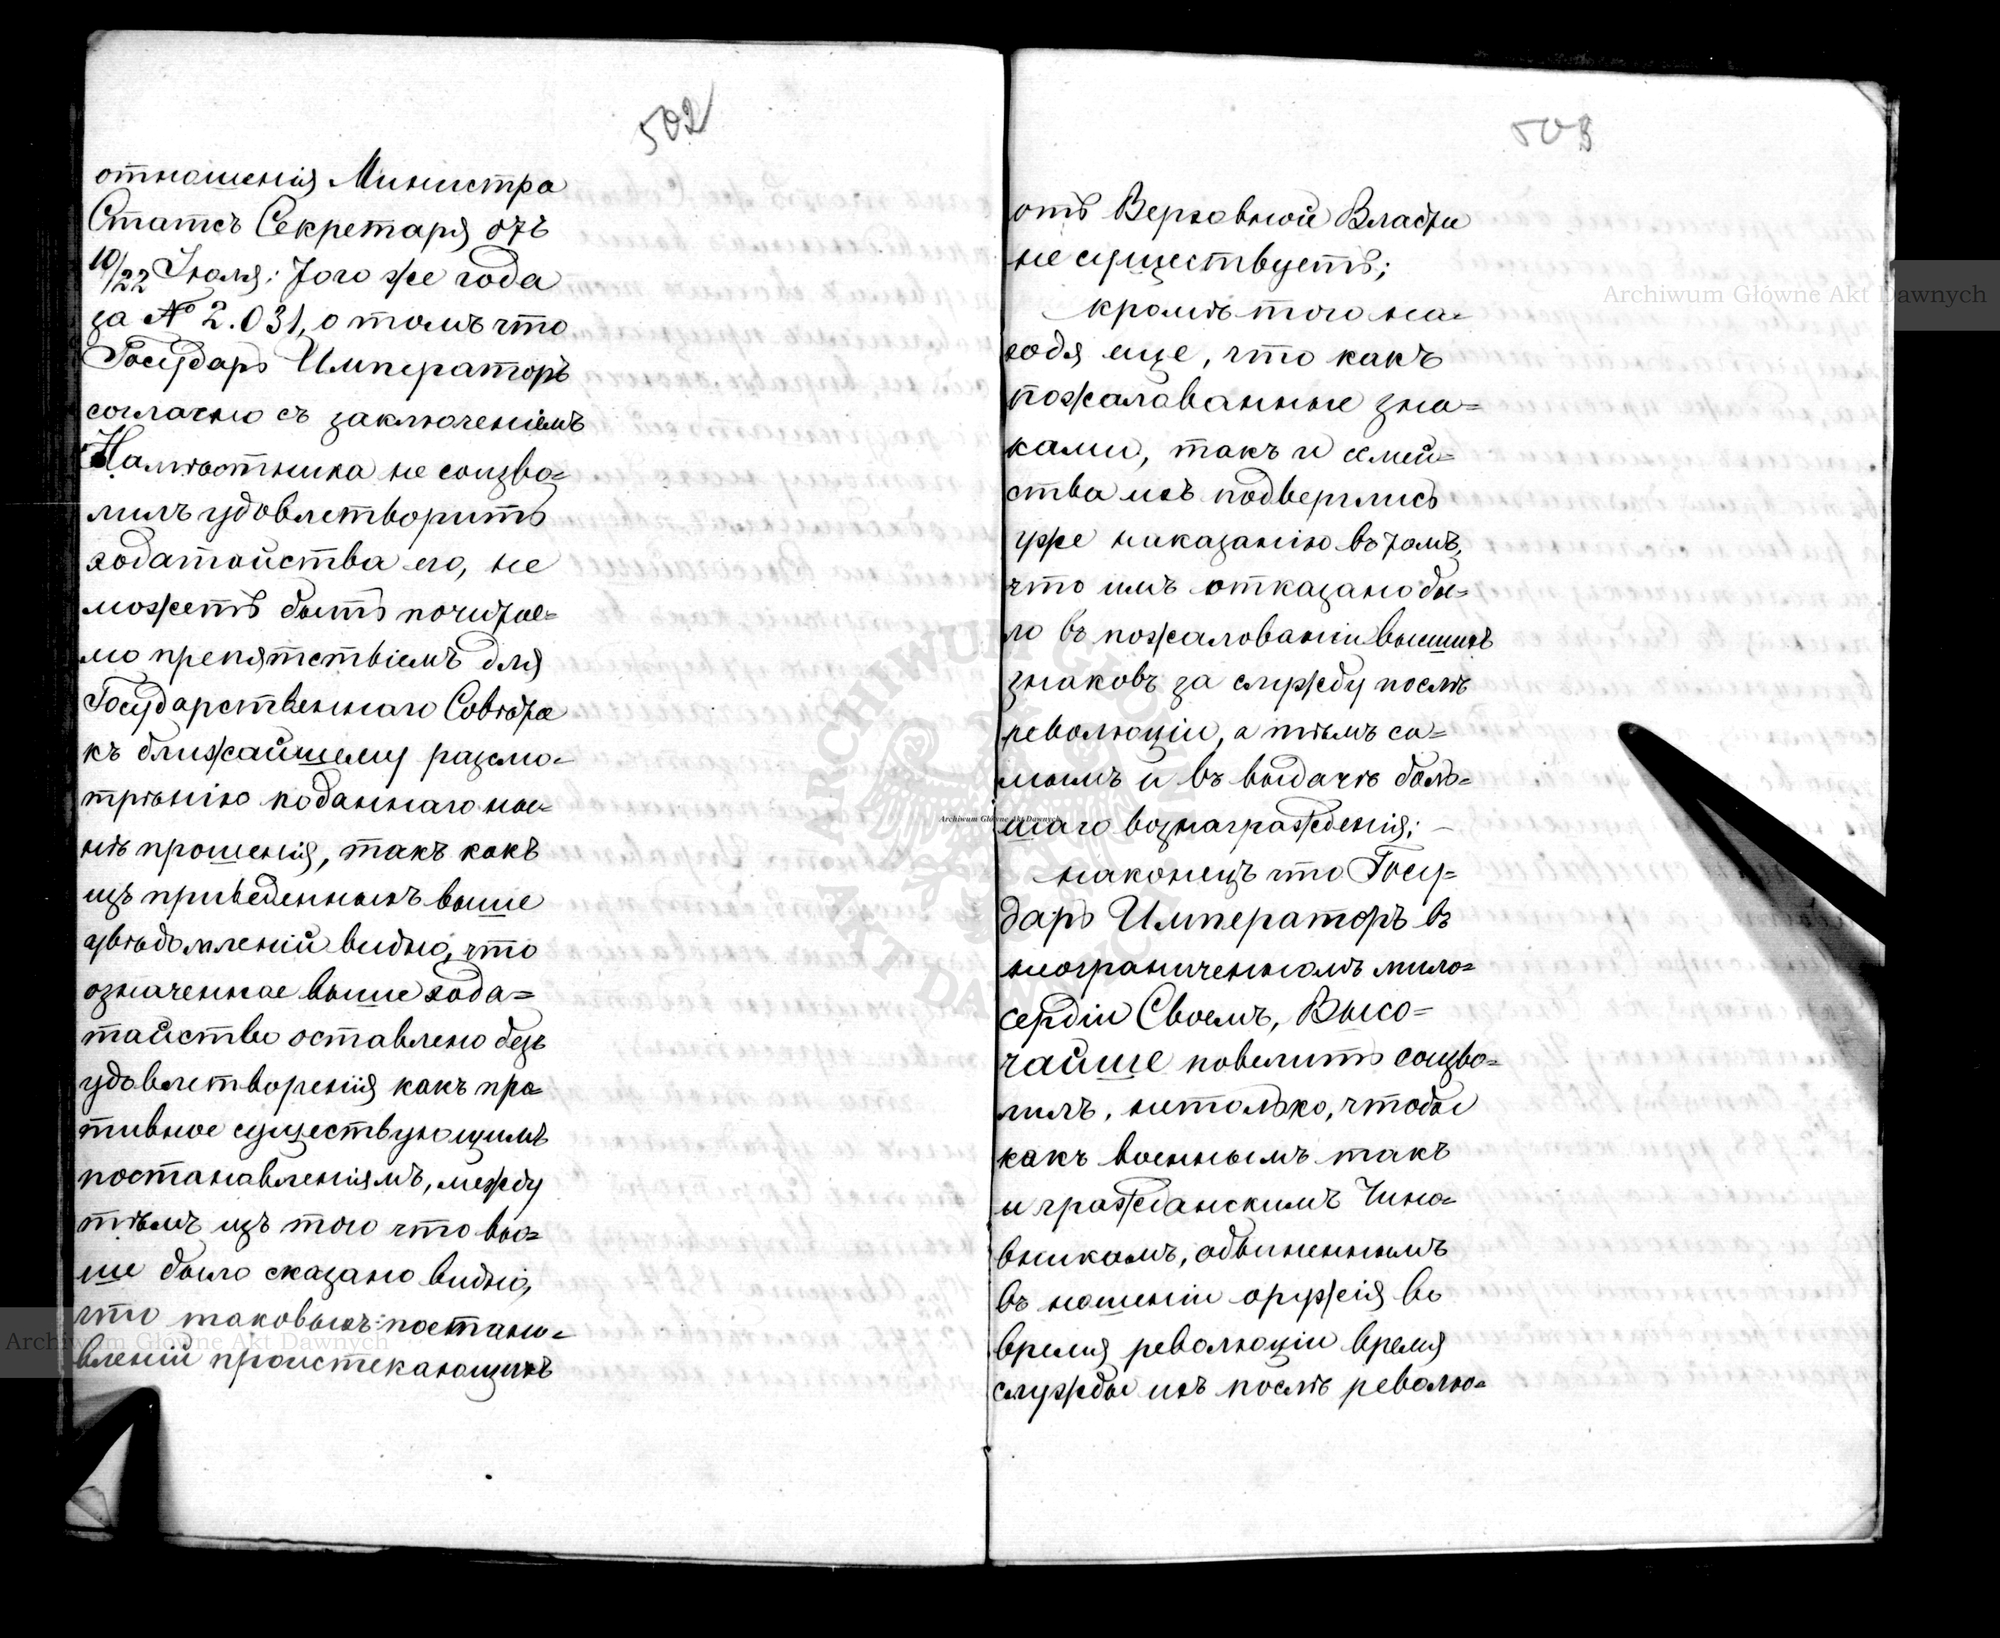 502
отношенія Министра
Статсъ Секретаря отъ
10/22 Іюля: того же года
за № 2.031, о томъ что
Государь Императоръ
согласно съ заключеніемъ
Намѣстника не соизво=
лилъ удовлетворить
ходатайства его, не
можетъ быть почитае=
мо препятствіемъ для
Государственнаго Совѣта
къ ближайшему разсмо=
трѣнію поданнаго ны=
нѣ прошенія, такъ какъ
изъ приведенныхъ выше
увѣдомленій видно, что
означенное выше хода=
тайство оставлено безъ
удовлетворенія какъ про=
тивное существующимъ
постановленіямъ, между
тѣмъ изъ того что вы=
ше было сказано видно,
что таковыхъ постано=
вленій проистекающихъ
503
отъ Верховной Власти
не существуетъ;
кромѣ того на=
ходя еще, что какъ
пожалованные зна=
ками, такъ и семей=
ства ихъ подверглись
уже наказанію въ томъ,
что имъ отказано бы=
ло въ пожалованіи высшихъ
знаковъ за службу послѣ
революціи, а тѣмъ са=
мымъ и въ выдачѣ боль=
шаго вознагражденія; —
наконецъ что Госу=
дарь Императоръ въ
неограниченномъ мило=
сердіи Своемъ, Высо=
чайше повелить соизво=
лилъ, нетолько, чтобы
какъ военнымъ такъ
и гражданскимъ Чино=
вникомъ, обвиненнымъ
въ ношеніи оружія во
время революціи время
службы ихъ послѣ револю=
Archiwum Główne Akt Dawnych
Archiwum Główne Akt Dawnych
Archiwum Główne Akt Dawnych
ARCHIWUM GŁÓWNE AKT DAWNYCH